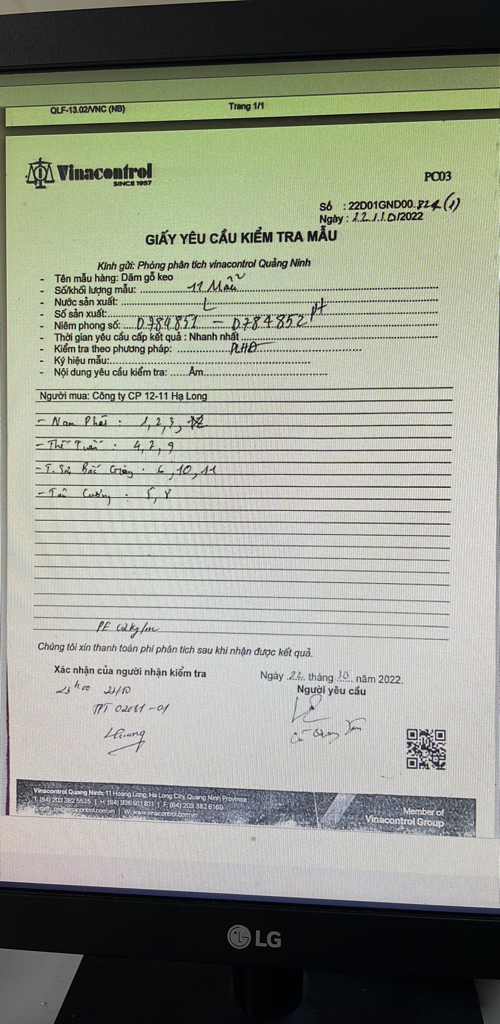 QLF-13.02/VNC (NB) Trang 1/1
Vinacontrol
SINCE 1957
PC03
Số : 22D01GND00.824(1)
Ngày : 22/10/2022
GIẤY YÊU CẦU KIỂM TRA MẪU
Kính gửi: Phòng phân tích vinacontrol Quảng Ninh
- Tên mẫu hàng: Dăm gỗ keo
- Số/khối lượng mẫu: 11 Mẫu
- Nước sản xuất:
- Số sản xuất:
- Niêm phong số: 0784851 - 0784852
- Thời gian yêu cầu cấp kết quả : Nhanh nhất
- Kiểm tra theo phương pháp:
- Ký hiệu mẫu:
- Nội dung yêu cầu kiểm tra: Ẩm
Người mua: Công ty CP 12-11 Hạ Long
- Nam Phát : 1, 2, 3,
- : 4, 7, 9
- Bắc Giang : 6, 10, 11
- Tân Cường : 5, 8
Chúng tôi xin thanh toán phí phân tích sau khi nhận được kết quả.
Xác nhận của người nhận kiểm tra
Ngày 22 tháng 10 năm 2022.
Người yêu cầu
Vinacontrol Quang Ninh: 11 Hoang Long, Ha Long City, Quang Ninh Province
T: (84) 203 382 5535 | H: (84) 936 901 811 | F: (84) 203 382 6169
Member of
Vinacontrol Group
LG